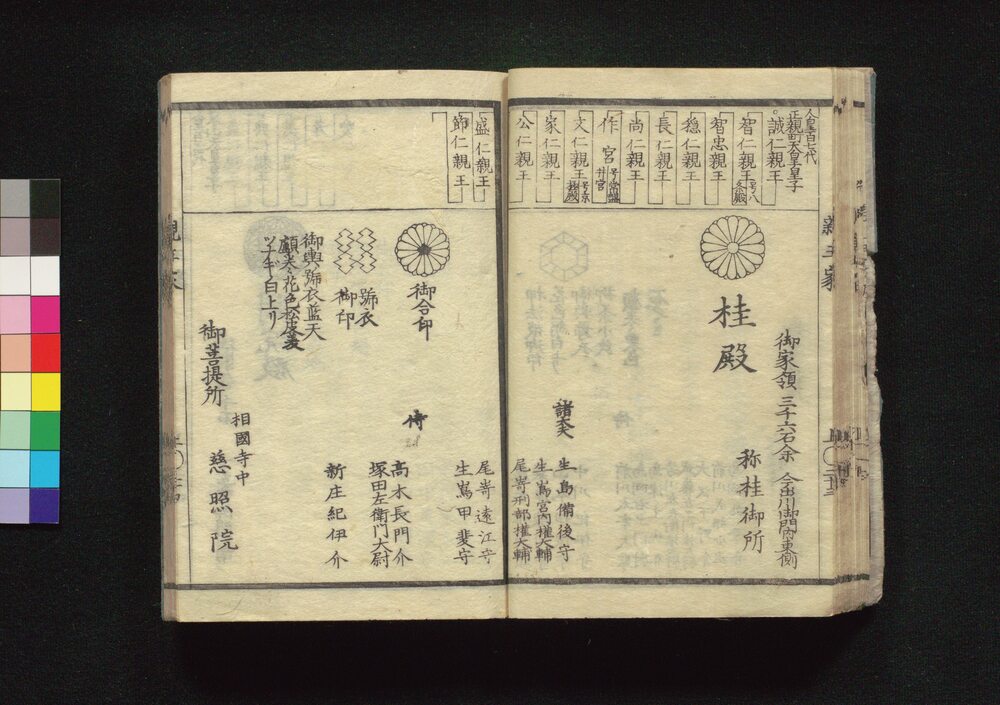 人皇百七代
正親町天皇皇子
誠仁親王
智仁親王 号八条殿
智忠親王
穏仁親王
長仁親王
尚仁親王
作宮 号常盤井宮
文仁親王 号京極殿
家仁親王
公仁親王
親王家
御家領 三千六石余 今出川御門内東側
桂殿
称桂御所
諸大夫
生島備後守
生嶌宮内権大輔
尾嵜刑部権大輔
盛仁親王
節仁親王
御合印
號衣
御印
御輿號衣藍天
ツナギノ白上リ
尾嵜遠江守
生嶌甲斐守
侍
高木長門介
塚田左衛門大尉
新庄紀伊介
御菩提所
相國寺中
慈照院
親王家